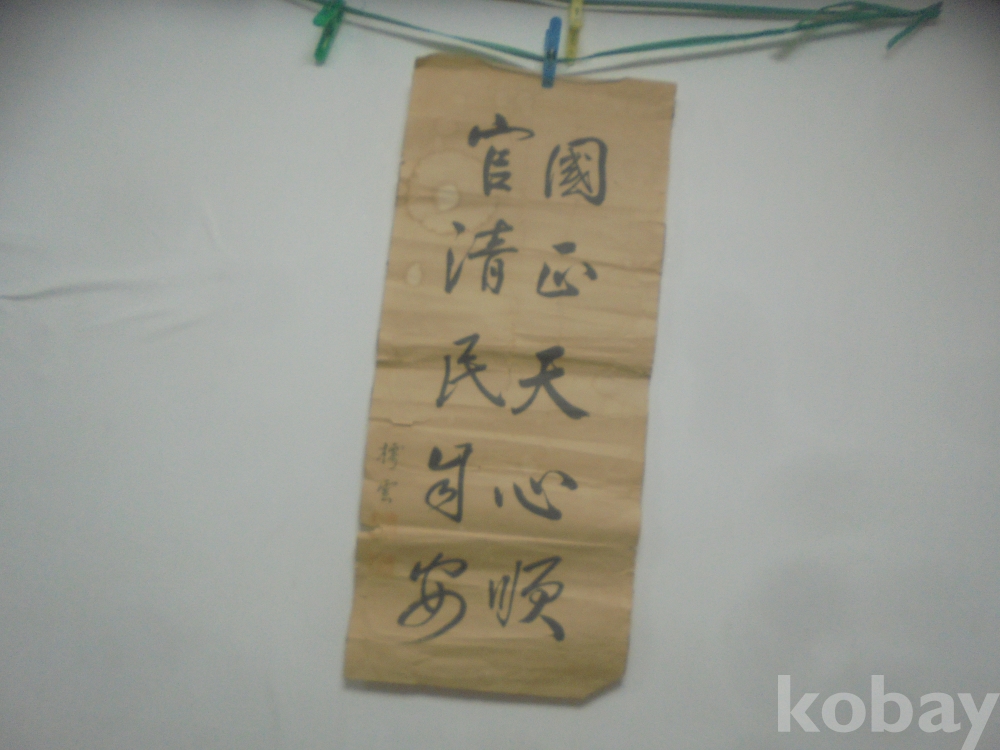 國正天心順
官清民自安
雲
kobay